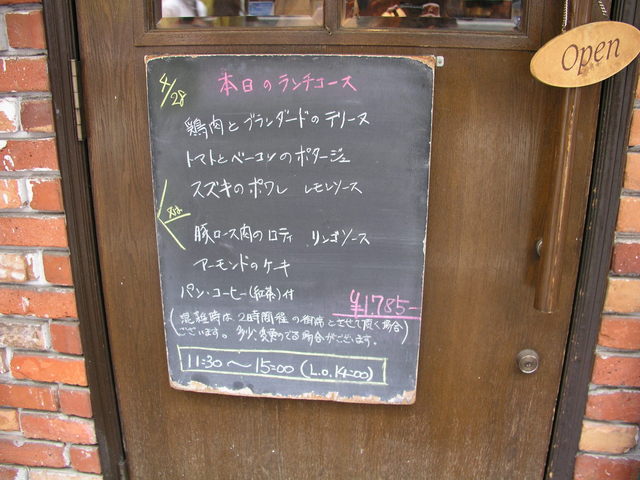 Open
4/28
本日のランチコース
鶏肉とブランダードのテリーヌ
トマトとベーコンのポタージュ
スズキのポワレ レモンソース
又は
豚ロース肉のロティ リンゴソース
アーモンドのケーキ
パン・コーヒー(紅茶)付
¥1.785-
(混雑時は2時間程の御席とさせて頂く場合
ございます。多少 の る場合がございます。)
11:30～15:00(L.O.14:00)